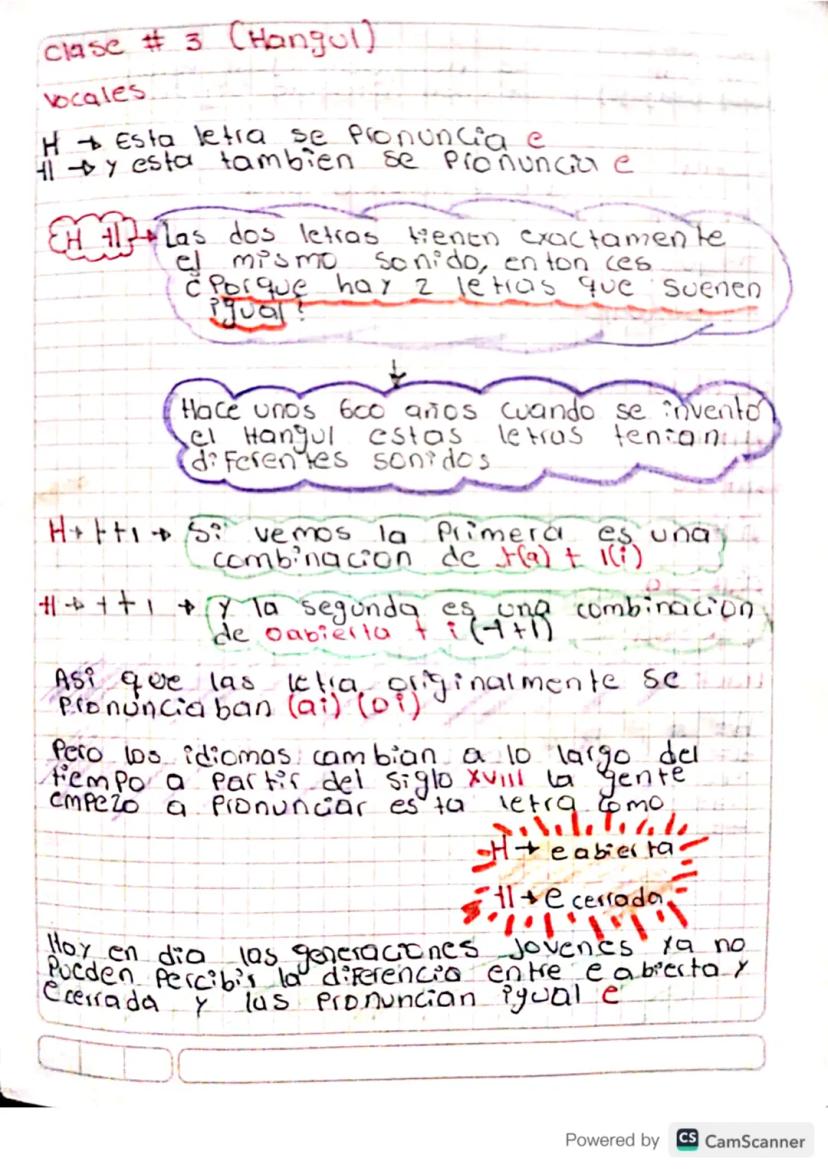 Clase # 3 (Hangul)
Vocales
ㅐ → Esta letra se pronuncia e
ㅔ → y esta tambien se pronuncia e
ㅐ ㅔ → Las dos letras tienen exactamente
el mismo sonido, entonces
¿Porque hay 2 letras que suenen
igual?
↓
Hace unos 600 años cuando se invento
el Hangul estas letras tenian
diferentes sonidos
ㅐ→ㅏ+ㅣ → Si vemos la primera es una
combinacion de ㅏ(a) + ㅣ(i)
ㅔ→ㅓ+ㅣ → Y la segunda es una combinacion
de o abierta + i (ㅓ+ㅣ)
Asi que las letra originalmente se
pronunciaban (ai) (oi)
Pero los idiomas cambian a lo largo del
tiempo a partir del siglo XVIII la gente
empezo a pronunciar esta letra como
ㅐ→ e abierta
ㅔ→ e cerrada
Hoy en dia las generaciones jovenes ya no
pueden percibir la diferencia entre e abierta y
e cerrada y las pronuncian igual e
Powered by CS CamScanner